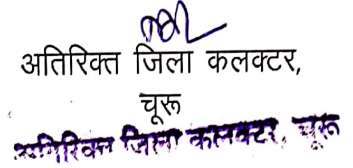 अतिरिक्त जिला कलक्टर,
चूरू
अतिरिक्त जिला कलक्टर, चूरू